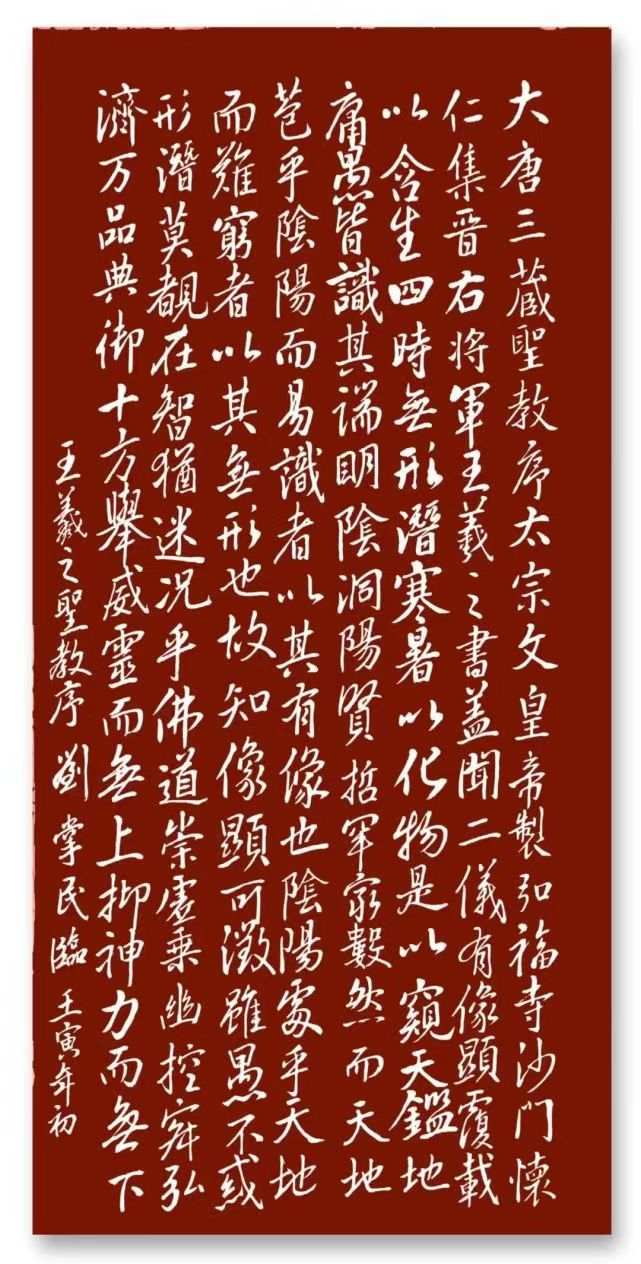 大唐三蔵聖教序太宗文皇帝製弘福寺沙門懷
仁集晋右將軍王羲之書蓋聞二儀有像顯覆載
以含生四時無形潛寒暑以化物是以窺天鑑地
庸愚皆識其端明陰洞陽賢哲罕窮數然而天地
苞乎陰陽而易識者以其有像也陰陽處乎天地
而難窮者以其無形也故知像顯可徵雖愚不惑
形潛莫覩在智猶迷况乎佛道崇虛乗幽控寂弘
濟万品典御十方舉威靈而無上抑神力而無下
王羲之聖教序劉掌民臨壬寅年初